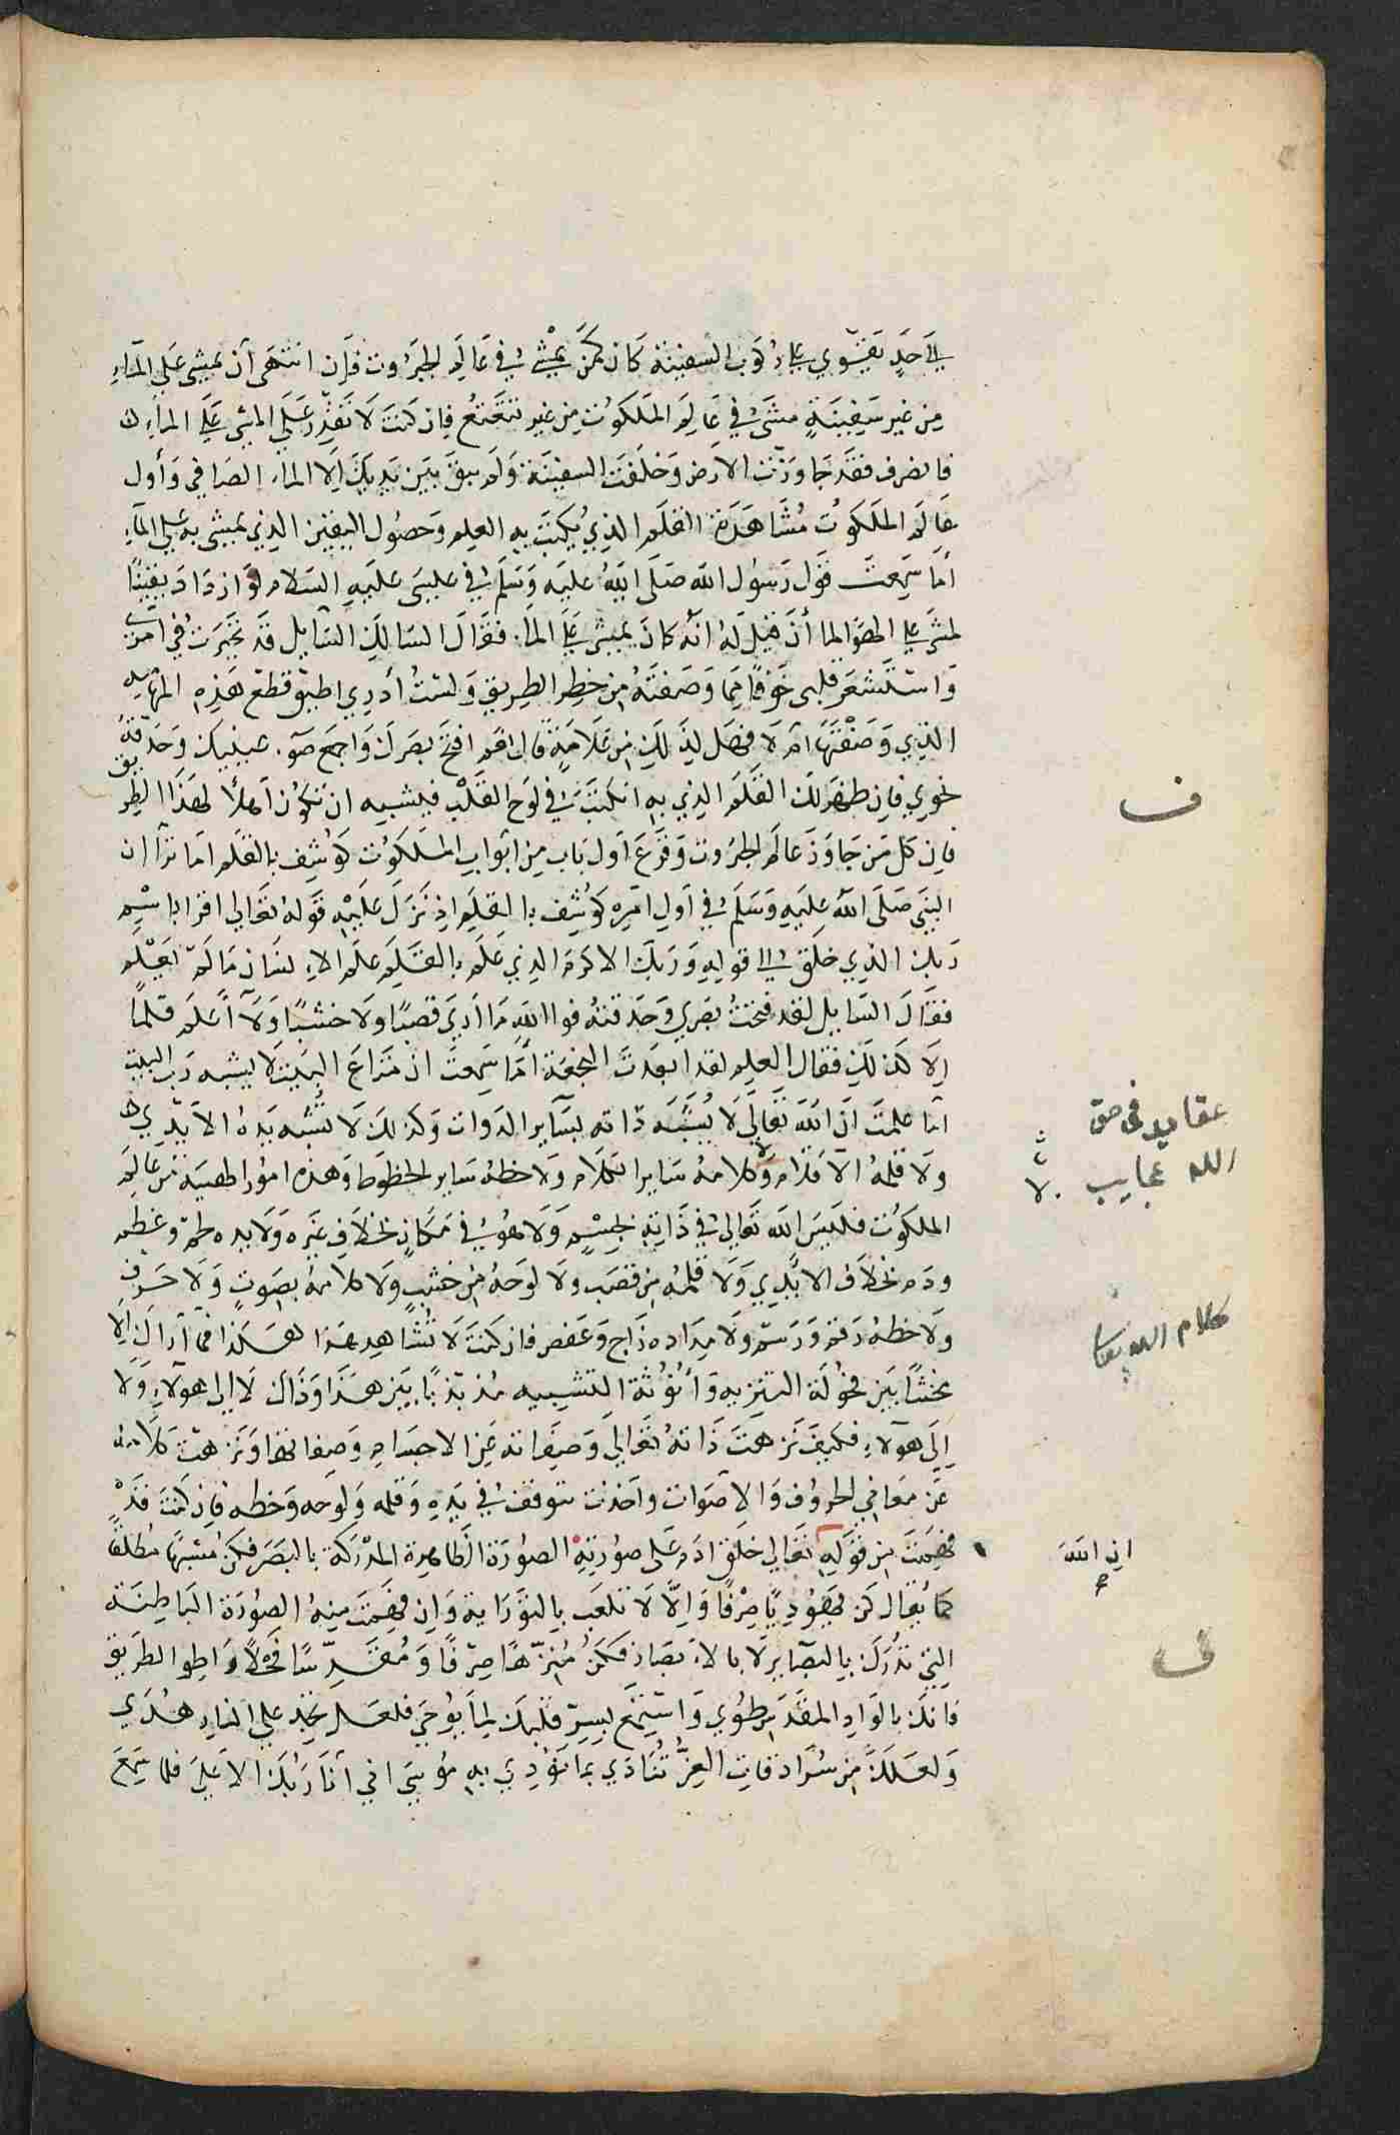 الى حد يقوي على ركوب السفينة كان كمن يمشي في عالم الجبروت فإن انتهى أن يمشي على الماء
من غير سفينة مشى في عالم الملكوت من غير تتعتع فإن كنت لا تقدر على المشي على الماء
فانصرف فقد جاوزت الارض وخلفت السفينة ولم يبق بين يديك إلا الماء الصافي وأول
عالم الملكوت مشاهدة القلم الذي يكتب به العلم وحصول اليقين الذي يمشى به على الماء
أما سمعت قول رسول الله صلى الله عليه وسلم في عيسى عليه السلام لو ازداد يقينًا
لمشى على الهوا لما أن قيل له انه كان يمشي على الماء فقال السالك السايل قد تحيرت في أمري
واستشعر قلبي خوفًا مما وصفته من خطر الطريق ولست أدري اطيق قطع هذه المهامه
الذي وصفتها ام لا فهل لذلك من علامة قال نعم افتح بصرك واجمع ضوء عينيك وحدقه
نحوي فإن ظهر لك القلم الذي به انكتبت في لوح القلب فيشبه ان تكون أهلًا لهذا الطريق
فإن كل من جاوز عالم الجبروت وقرع أول باب من ابواب الملكوت كوشف بالقلم اما ترا ان
النبي صلى الله عليه وسلم في أول امره كوشف بالقلم إذ نزل عليه قوله تعالى اقرا باسم
ربك الذي خلق الى قوله وربك الاكرم الذي علم بالقلم علم الانسان ما لم يعلم
فقال السايل لقد فتحت بصري وحدقته فوالله ما أري قصبًا ولا خشبًا ولا أعلم قلمًا
إلا كذلك فقال العلم لقد ابعدت النجعة أما سمعت ان متاع البيت لا يشبه رب البيت
أما علمت أن الله تعالى لا يشبه ذاته بسآير الذوات وكذلك لا تشبه يده الأيدي
ولا قلمه الأقلام ولا كلامه سائر الكلام ولا خطه ساير الخطوط وهذه امور الهية من عالم
الملكوت فليس الله تعالى في ذاته بجسم ولا هو في مكان بخلاف غيره ولا يده لحم وعظم
ودم بخلاف الايدي ولا قلمه من قصب ولا لوحه من خشب ولا كلامه بصوت ولا حرف
ولا خطه رقم ورسم ولا مداده زاج وعفص فان كنت لا تشاهد هذا هكذا فما أراك إلا
مخنثًا بين فحولة التنزيه وأنوثة التشبيه مذبذبًا بين هذا وذاك لا إلى هولاء ولا
إلى هولاء فكيف نزهت ذاته تعالى وصفاته عن الاجسام وصفاتها ونزهت كلامه
عن معاني الحروف والاصوات واخذت تتوقف في يده وقلمه ولوحه وخطه فإن كنت قد
فهمت من قوله تعالى خلق ادم على صورته الصورة الظاهرة المدركة بالبصر فكن مشبهًا مطلقًا
كما يقال كن يهوديًا صرفًا وإلا لا تلعب بالتوراية وان فهمت منه الصورة الباطنة
التي تدرك بالبصآير لا بالابصار فكن منزهًا صرفًا ومقدسًا فحلًا واطو الطريق
فانك بالواد المقدس طوي واستمع بسر قلبك لما يوحى فلعلك تجد على النار هدى
ولعلك من سرادقات العز تنادي بما نودي به موسى اني أنا ربك الاعلى فلما سمع
ف
عقايد في حق
الله عجايب
كلام الله تعالى
ان الله